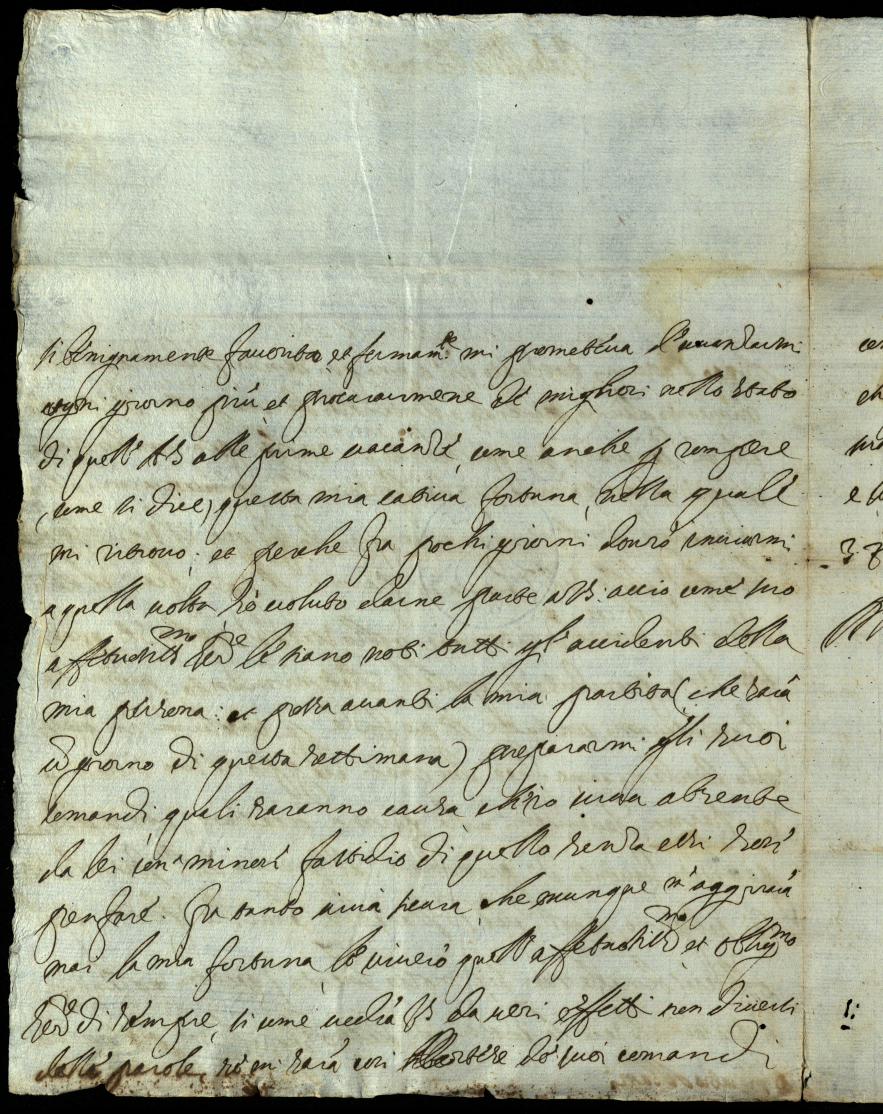 si benignamente favorito et fermam.te mi prometteva d'avanzarmi ce
ogni giorno più et procurarmene de migliori nello stato ch
di quelle alle prime vacanze, come anche p rompere
(come si dice) questa mia cativa fortuna, nella quale e
mi ritrovo; et perche fra pochi giorni dovrò inviarmi
a quella volta hò voluto darne parte a VS. acciò come suo
affetuosiss.mo ser.re le siano noti tutti gl'accidenti della
mia persona: et possa avanti la mia partita (che sarà
ũ giorno di questa settimana) prepararmi gli suoi
comandi quali saranno causa ch'io viva absente
da lei con minore fastidio di quello senza essi
pensare. fra tanto viva sicura, che ovunque m'aggirarà
mai la mia fortuna le vivero quell'affetuosiss.mo et oblig.mo
ser.e di sempre, si come vedrà VS da veri effetti non diversi
dalle parole, se mi sarà cortese de suoi comandi